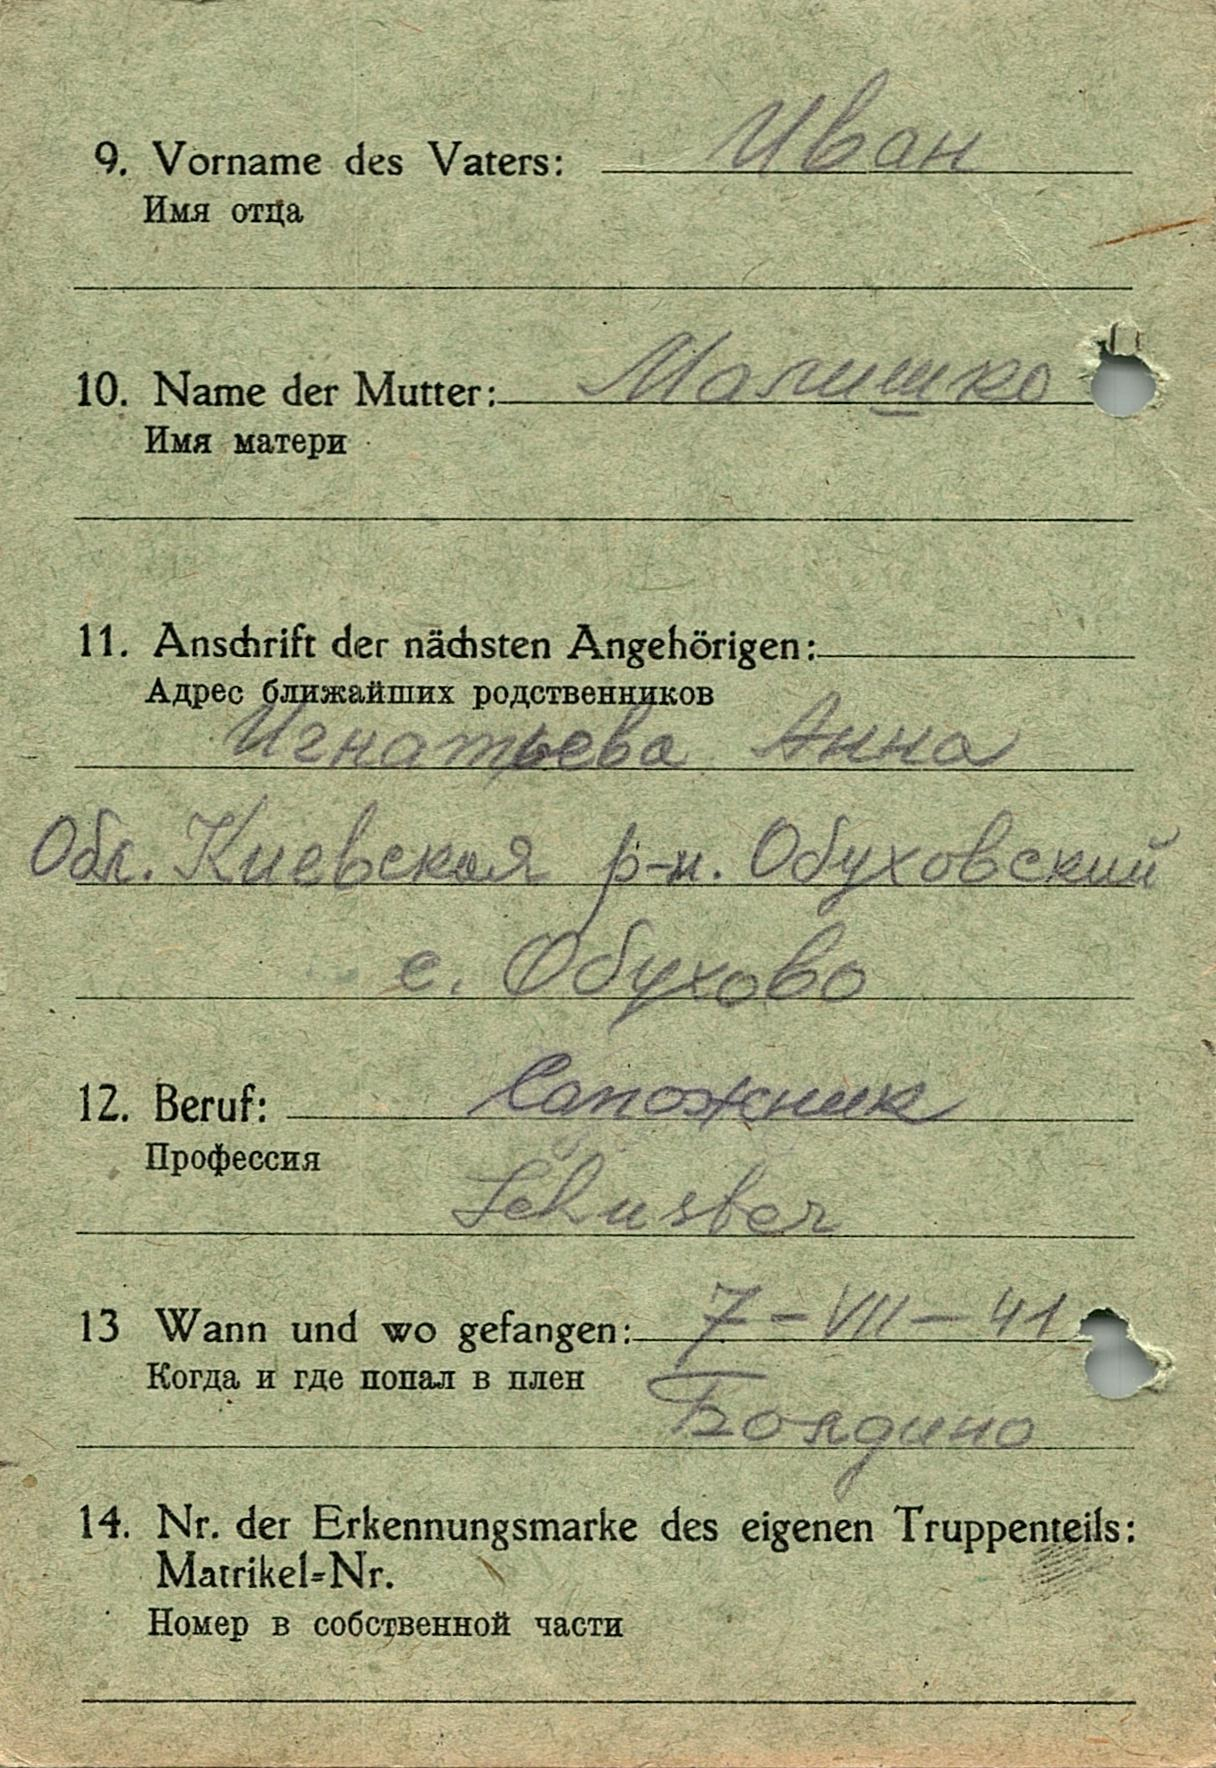 9. Vorname des Vaters: Иван
Имя отца
10. Name der Mutter: Малишко
Имя матери
11. Anschrift der nächsten Angehörigen:
Адрес ближайших родственников
Игнатьева Анна
Обл. Киевская р-н. Обуховский
с. Обухово
12. Beruf: Сапожник
Профессия
Schuster
13 Wann und wo gefangen: 7-VII-41
Когда и где попал в плен
Болдино
14. Nr. der Erkennungsmarke des eigenen Truppenteils:
Matrikel-Nr.
Номер в собственной части